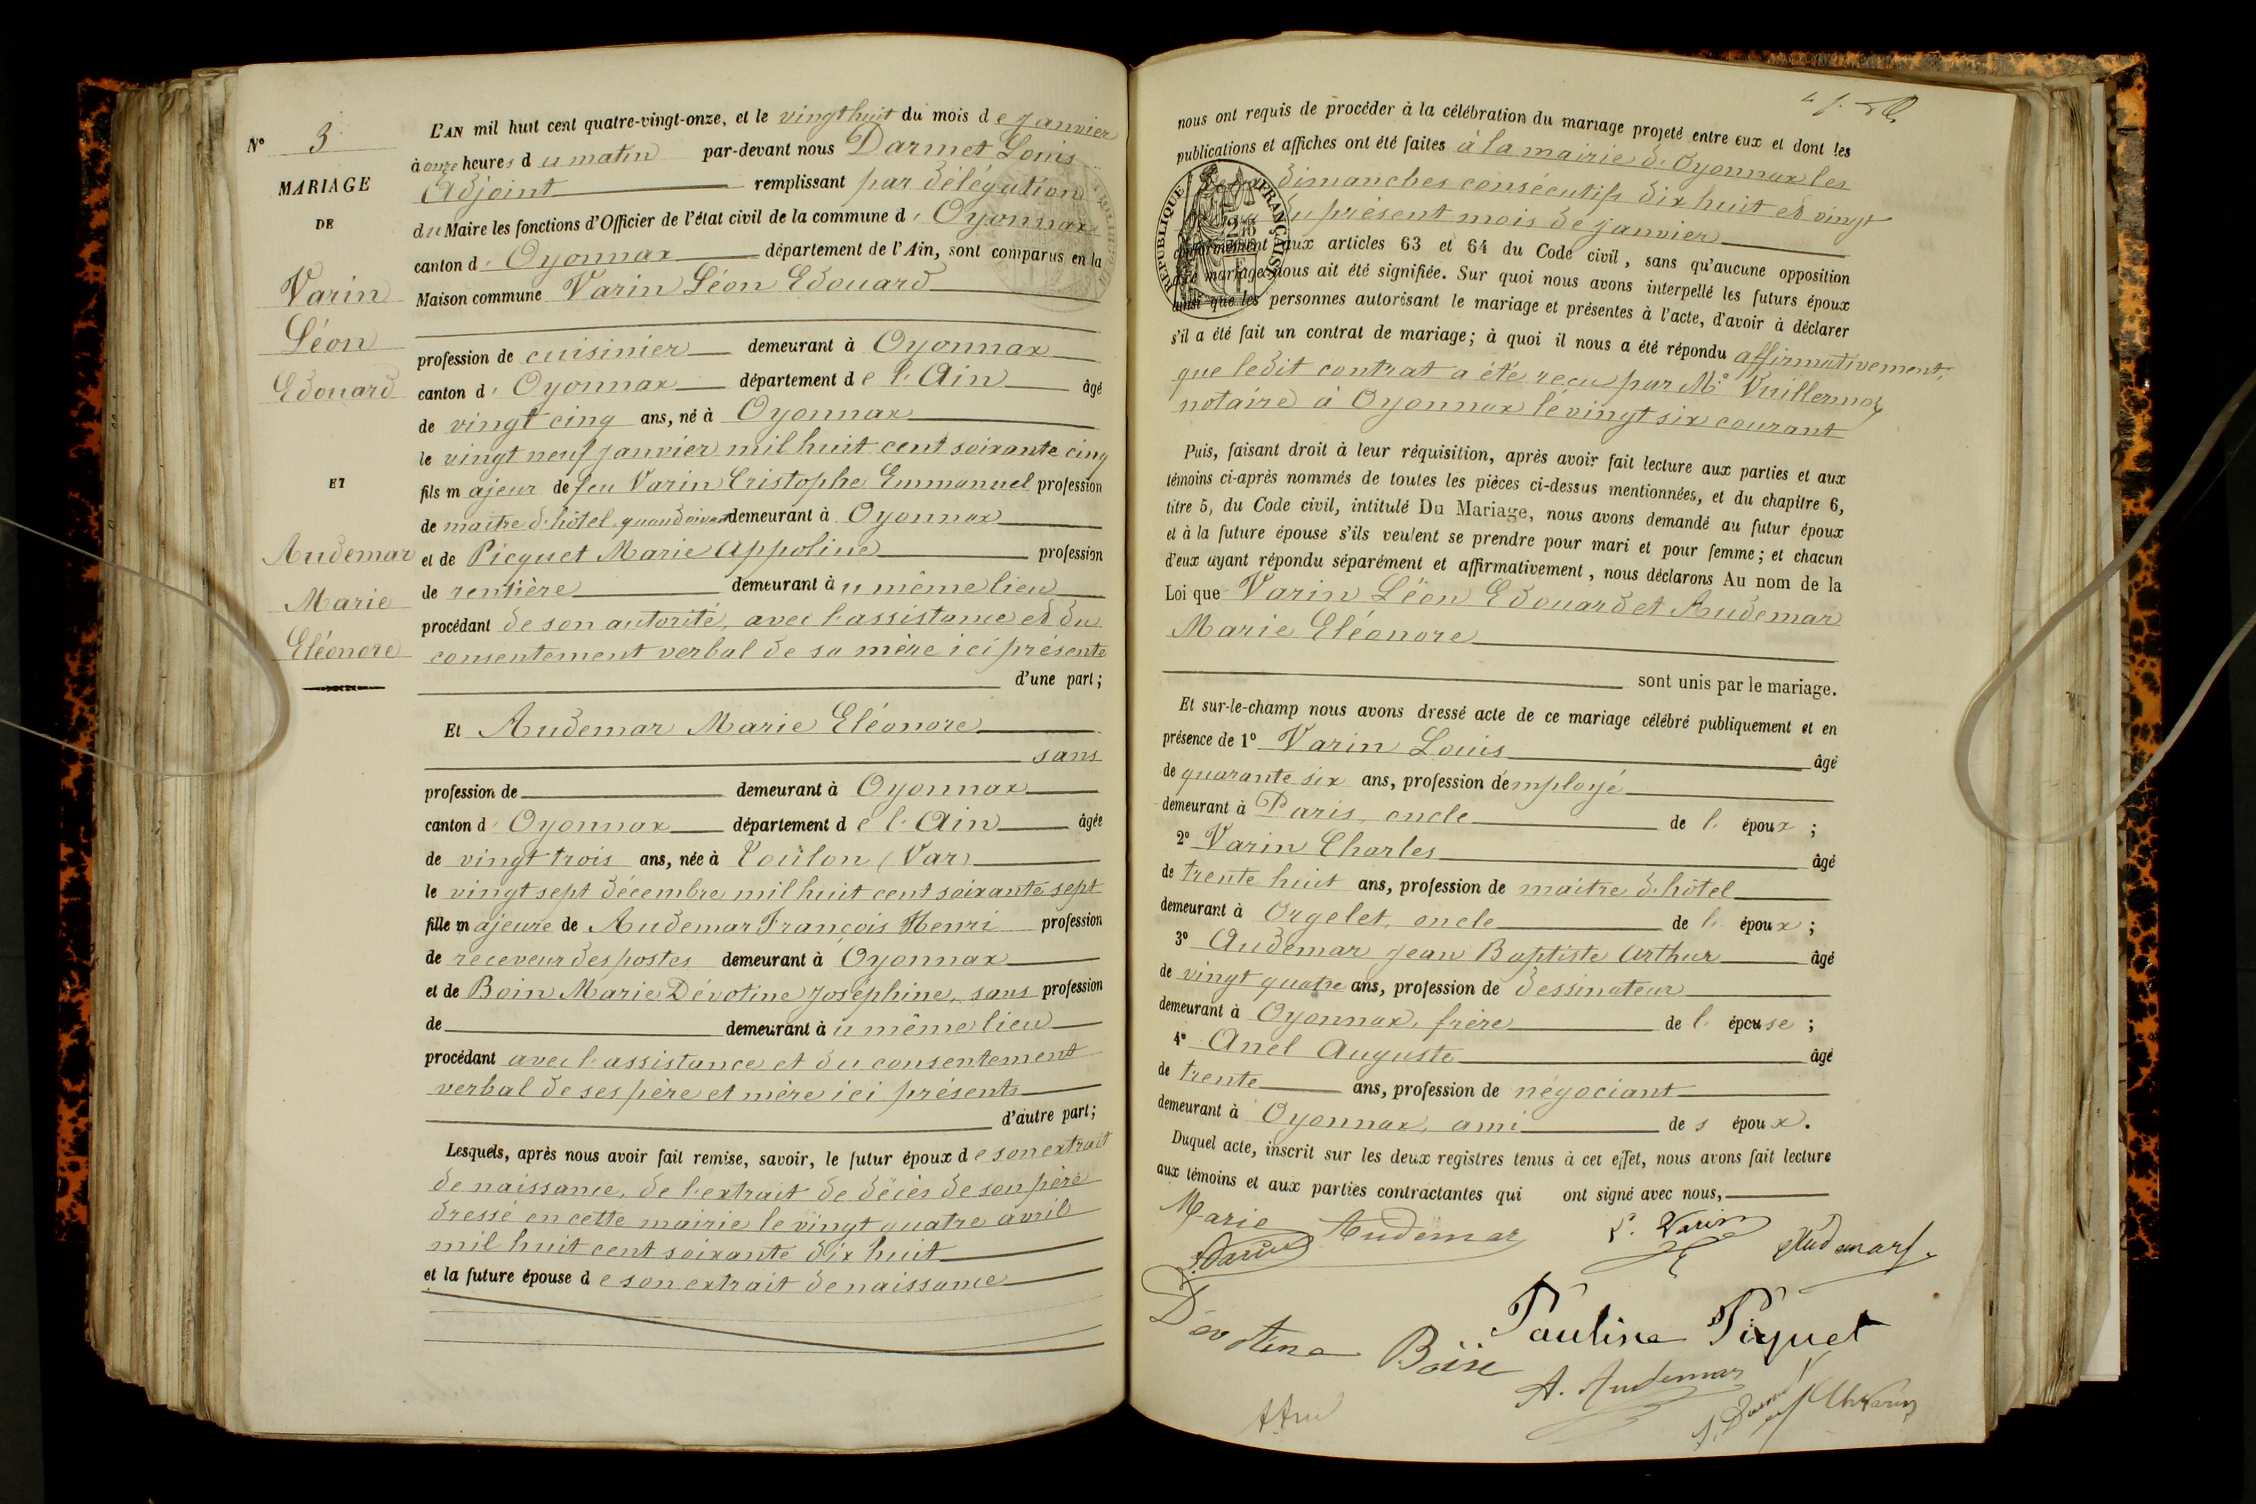 N° 3
MARIAGE
DE
Varin
Léon
Edouard
ET
Audemar
Marie
Eléonore
L'AN mil huit cent quatre-vingt-onze, et le vingt huit du mois de janvier
à onze heures du matin par-devant nous Darmet Louis
Adjoint remplissant par délégation
du Maire les fonctions d'Officier de l'état civil de la commune d'Oyonnax
canton d'Oyonnax département de l'Ain, sont comparus en la
Maison commune Varin Léon Edouard
profession de cuisinier demeurant à Oyonnax
canton d'Oyonnax département de l'Ain âgé
de vingt cinq ans, né à Oyonnax
le vingt neuf janvier mil huit cent soixante cinq
fils majeur de feu Varin Cristophe Emmanuel profession
de maître d'hôtel quand vivant demeurant à Oyonnax
et de Picquet Marie Appoline profession
de rentière demeurant au même lieu
procédant de son autorité, avec l'assistance et du
consentement verbal de sa mère ici présente
d'une part;
Et Audemar Marie Eléonore
sans
profession de demeurant à Oyonnax
canton d'Oyonnax département de l'Ain âgée
de vingt trois ans, née à Toulon (Var)
le vingt sept décembre mil huit cent soixante sept
fille majeure de Audemar François Henri profession
de receveur des postes demeurant à Oyonnax
et de Boin Marie Dévotine Joséphine, sans profession
de demeurant au même lieu
procédant avec l'assistance et du consentement
verbal de ses père et mère ici présents
d'autre part;
Lesquels, après nous avoir fait remise, savoir, le futur époux de son extrait
de naissance, de l'extrait de décès de son père
dressé en cette mairie le vingt quatre avril
mil huit cent soixante dix huit
et la future épouse de son extrait de naissance
nous ont requis de procéder à la célébration du mariage projeté entre eux et dont les
publications et affiches ont été faites à la mairie d'Oyonnax les
dimanches consécutifs dix huit et vingt
du présent mois de janvier
conformément aux articles 63 et 64 du Code civil, sans qu'aucune opposition
audit mariage nous ait été signifiée. Sur quoi nous avons interpellé les futurs époux
ainsi que les personnes autorisant le mariage et présentes à l'acte, d'avoir à déclarer
s'il a été fait un contrat de mariage; à quoi il nous a été répondu affirmativement,
que ledit contrat a été reçu par Me Vuillermoz
notaire à Oyonnax le vingt six courant
RÉPUBLIQUE FRANÇAISE
Puis, faisant droit à leur réquisition, après avoir fait lecture aux parties et aux
témoins ci-après nommés de toutes les pièces ci-dessus mentionnées, et du chapitre 6,
titre 5, du Code civil, intitulé Du Mariage, nous avons demandé au futur époux
et à la future épouse s'ils veulent se prendre pour mari et pour femme; et chacun
d'eux ayant répondu séparément et affirmativement, nous déclarons Au nom de la
Loi que Varin Léon Edouard et Audemar
Marie Eléonore
sont unis par le mariage.
Et sur-le-champ nous avons dressé acte de ce mariage célébré publiquement et en
présence de 1° Varin Louis âgé
de quarante six ans, profession d'employé
demeurant à Paris, oncle de l'époux;
2° Varin Charles âgé
de trente huit ans, profession de maître d'hôtel
demeurant à Orgelet, oncle de l'époux;
3° Audemar Jean Baptiste Arthur âgé
de vingt quatre ans, profession de dessinateur
demeurant à Oyonnax, frère de l'épouse;
4° Anel Auguste âgé
de trente ans, profession de négociant
demeurant à Oyonnax, ami des époux.
Duquel acte, inscrit sur les deux registres tenus à cet effet, nous avons fait lecture
aux témoins et aux parties contractantes qui ont signé avec nous,
Marie Audemar L. Varin Audemar
Varin
Dévotine Boin Pauline Piquet
A. Audemar